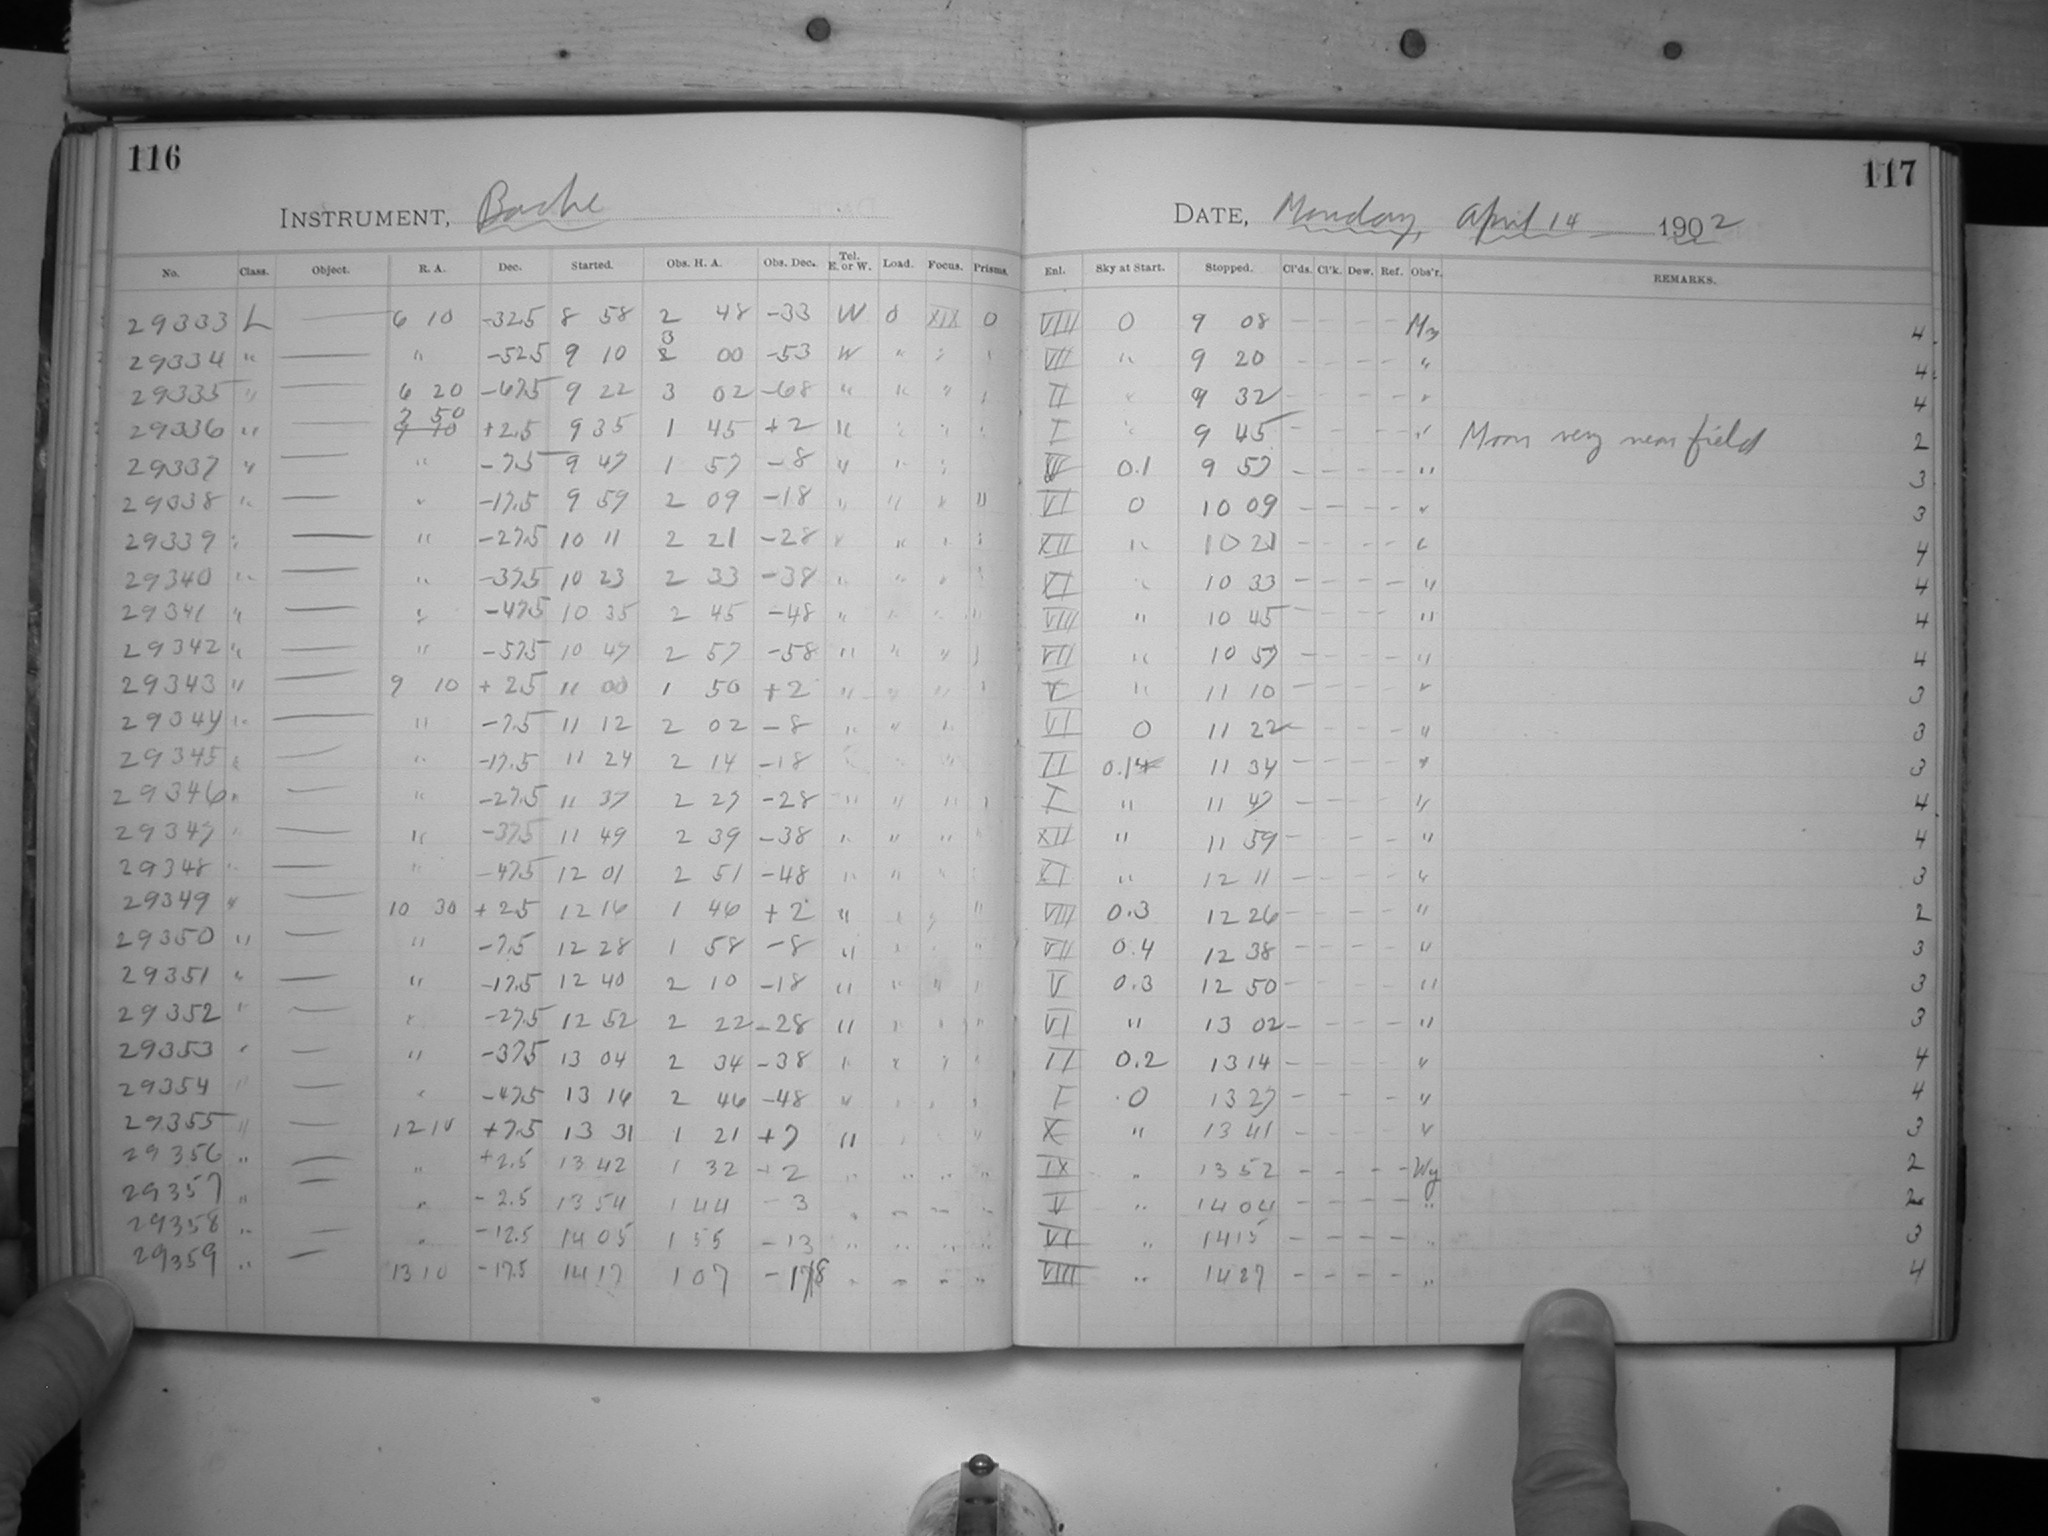 116
INSTRUMENT, Bache
No. Class. Object. R. A. Dec. Started. Obs. H. A. Obs. Dec. Tel. E. or W. Load. Focus. Prisms.
29333 L — 6 10 -32.5 8 58 2 48 -33 W 0 XIX 0
29334 " — " -52.5 9 10 3 00 -53 W " " "
29335 " — 6 20 -67.5 9 22 3 02 -68 " " " "
29336 " — 7 50 +2.5 9 35 1 45 +2 " " " "
29337 " — " -7.5 9 47 1 57 -8 " " "
29338 " — " -17.5 9 59 2 09 -18 " " " "
29339 " — " -27.5 10 11 2 21 -28 " " " "
29340 " — " -37.5 10 23 2 33 -38 " " " "
29341 " — " -47.5 10 35 2 45 -48 " " " "
29342 " — " -57.5 10 47 2 57 -58 " " " "
29343 " — 9 10 +2.5 11 00 1 50 +2 " " " "
29344 " — " -7.5 11 12 2 02 -8 " " "
29345 " — " -17.5 11 24 2 14 -18 " " "
29346 " — " -27.5 11 37 2 27 -28 " " " "
29347 " — " -37.5 11 49 2 39 -38 " " " "
29348 " — " -47.5 12 01 2 51 -48 " " " "
29349 " — 10 30 +2.5 12 16 1 46 +2 " " " "
29350 " — " -7.5 12 28 1 58 -8 " " " "
29351 " — " -17.5 12 40 2 10 -18 " " " "
29352 " — " -27.5 12 52 2 22 -28 " " " "
29353 " — " -37.5 13 04 2 34 -38 " " " "
29354 " — " -47.5 13 16 2 46 -48 " " " "
29355 " — 12 10 +7.5 13 31 1 21 +7 " " " "
29356 " — " +2.5 13 42 1 32 +2 " " " "
29357 " — " -2.5 13 54 1 44 -3 " " " "
29358 " — " -12.5 14 05 1 55 -13 " " " "
29359 " — 13 10 -17.5 14 17 1 07 -18 " " " "
117
DATE, Monday, April 14 1902
Enl. Sky at Start. Stopped. Cl'ds. Cl'k. Dew. Ref. Obs'r. REMARKS.
VIII 0 9 08 - - - - 4
VII " 9 20 - - - - " 4
II " 9 32 - - - - " 4
I " 9 45 - - - - " Moon very near field 2
V 0.1 9 57 - - - - " 3
VI 0 10 09 - - - - " 3
XII " 10 21 - - - - " 4
XI " 10 33 - - - - " 4
VIII " 10 45 - - - - " 4
VII " 10 57 - - - - " 4
V " 11 10 - - - - " 3
VI 0 11 22 - - - - " 3
II 0.1 11 34 - - - - " 3
I " 11 47 - - - - " 4
XII " 11 59 - - - - " 4
XI " 12 11 - - - - " 3
VIII 0.3 12 26 - - - - " 2
VII 0.4 12 38 - - - - " 3
V 0.3 12 50 - - - - " 3
VI " 13 02 - - - - " 3
II 0.2 13 14 - - - - " 4
I 0 13 27 - - - " 4
X " 13 41 - - - - " 3
IX " 13 52 - - - - Wy 2
V " 14 04 - - - - " 2
VI " 14 15 - - - - " 3
VIII " 14 27 - - - - " 4